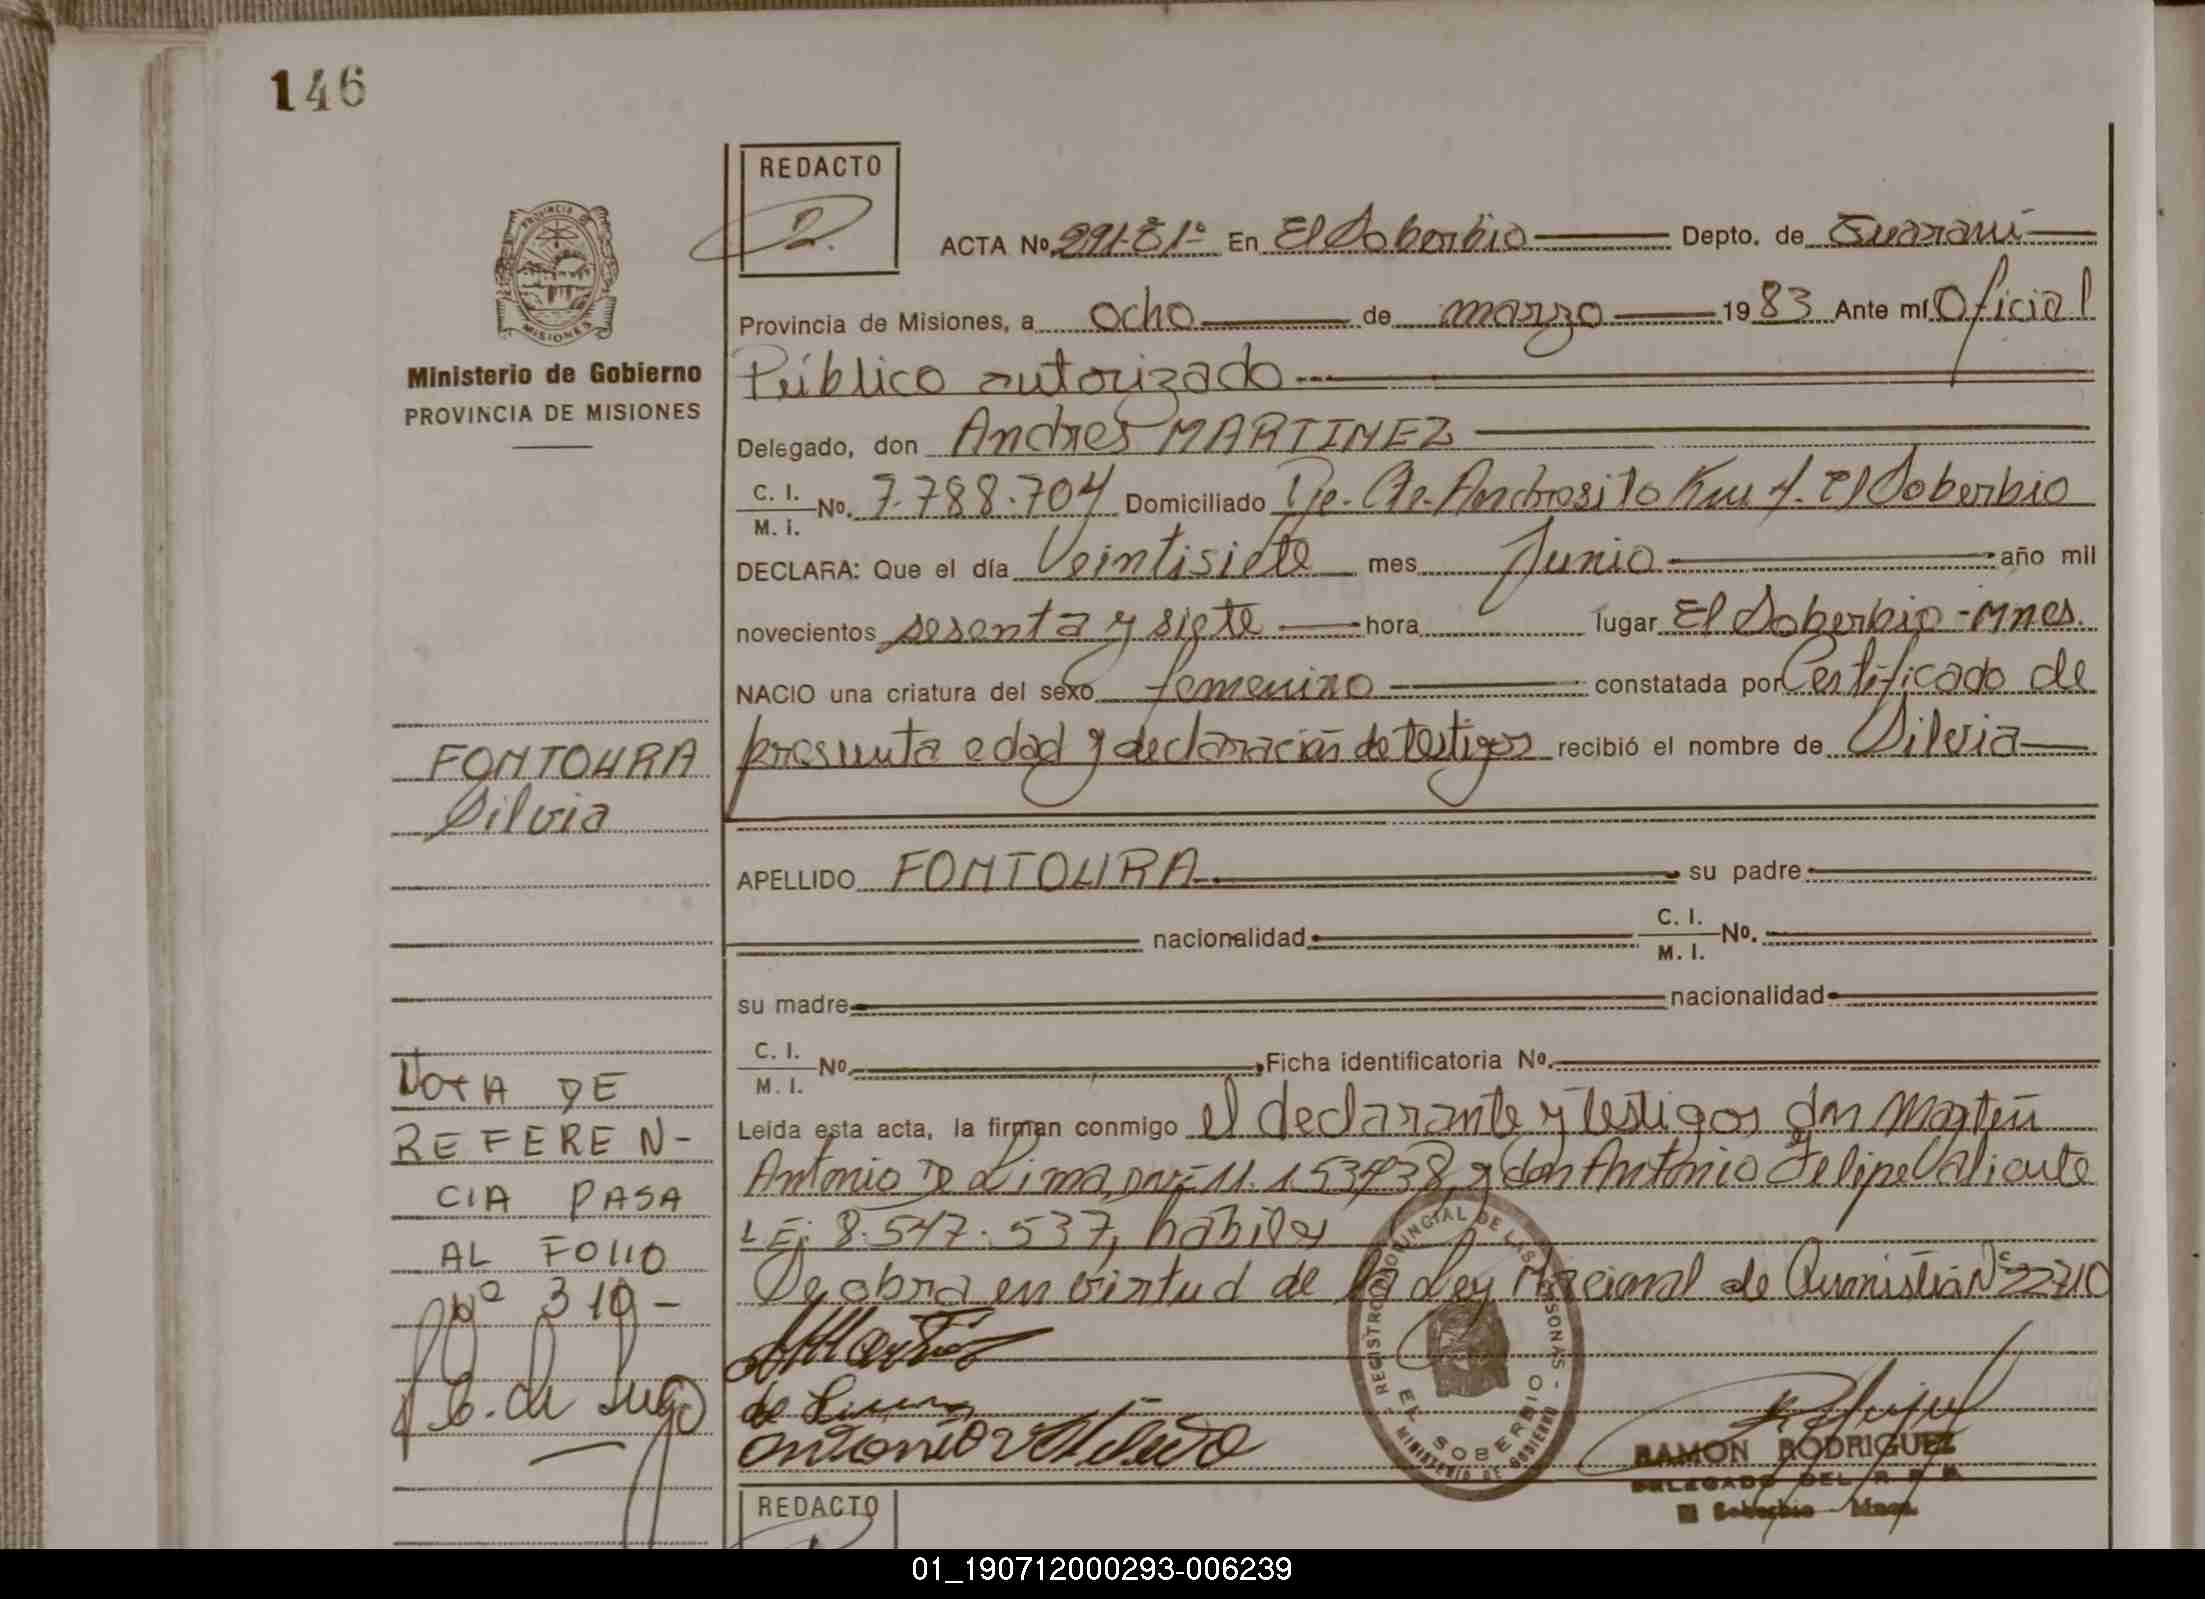 146
REDACTO
2.
ACTA No. 291-81º En El Soberbio Depto. de Guaraní
PROVINCIA DE MISIONES
Provincia de Misiones, a ocho de marzo 1983 Ante mí Oficial
Ministerio de Gobierno
PROVINCIA DE MISIONES
Público autorizado
Delegado, don Andres MARTINEZ
C. I.
M. I.
No. 7.788.704 Domiciliado Cte. Andresito Km El Soberbio
DECLARA: Que el día Veintisiete mes Junio año mil
novecientos sesenta y siete hora lugar El Soberbio - Mnes.
NACIO una criatura del sexo femenino constatada por Certificado de
presunta edad y declaración de testigos recibió el nombre de Silvia
FONTOURA
Silvia
APELLIDO FONTOURA su padre
nacionalidad C. I.
M. I. No.
su madre nacionalidad
C. I.
M. I. No. Ficha identificatoria No.
Leída esta acta, la firman conmigo el declarante y testigos don Martín
Antonio De Lima, DNI-11.153438 y don Antonio Felipe Valiente
LE: 8.547.537, hábiles
Se obra en virtud de la Ley Nacional de Amnistía Nº 22710
NOTA DE
REFEREN-
CIA PASA
AL FOLIO
Nº 319-
de Lima
REGISTRO PROVINCIAL DE LAS PERSONAS
EL SOBERBIO
MINISTERIO DE GOBIERNO
RAMON RODRIGUEZ
DELEGADO DEL R P P
El Soberbio - Mnes.
REDACTO
01_190712000293-006239